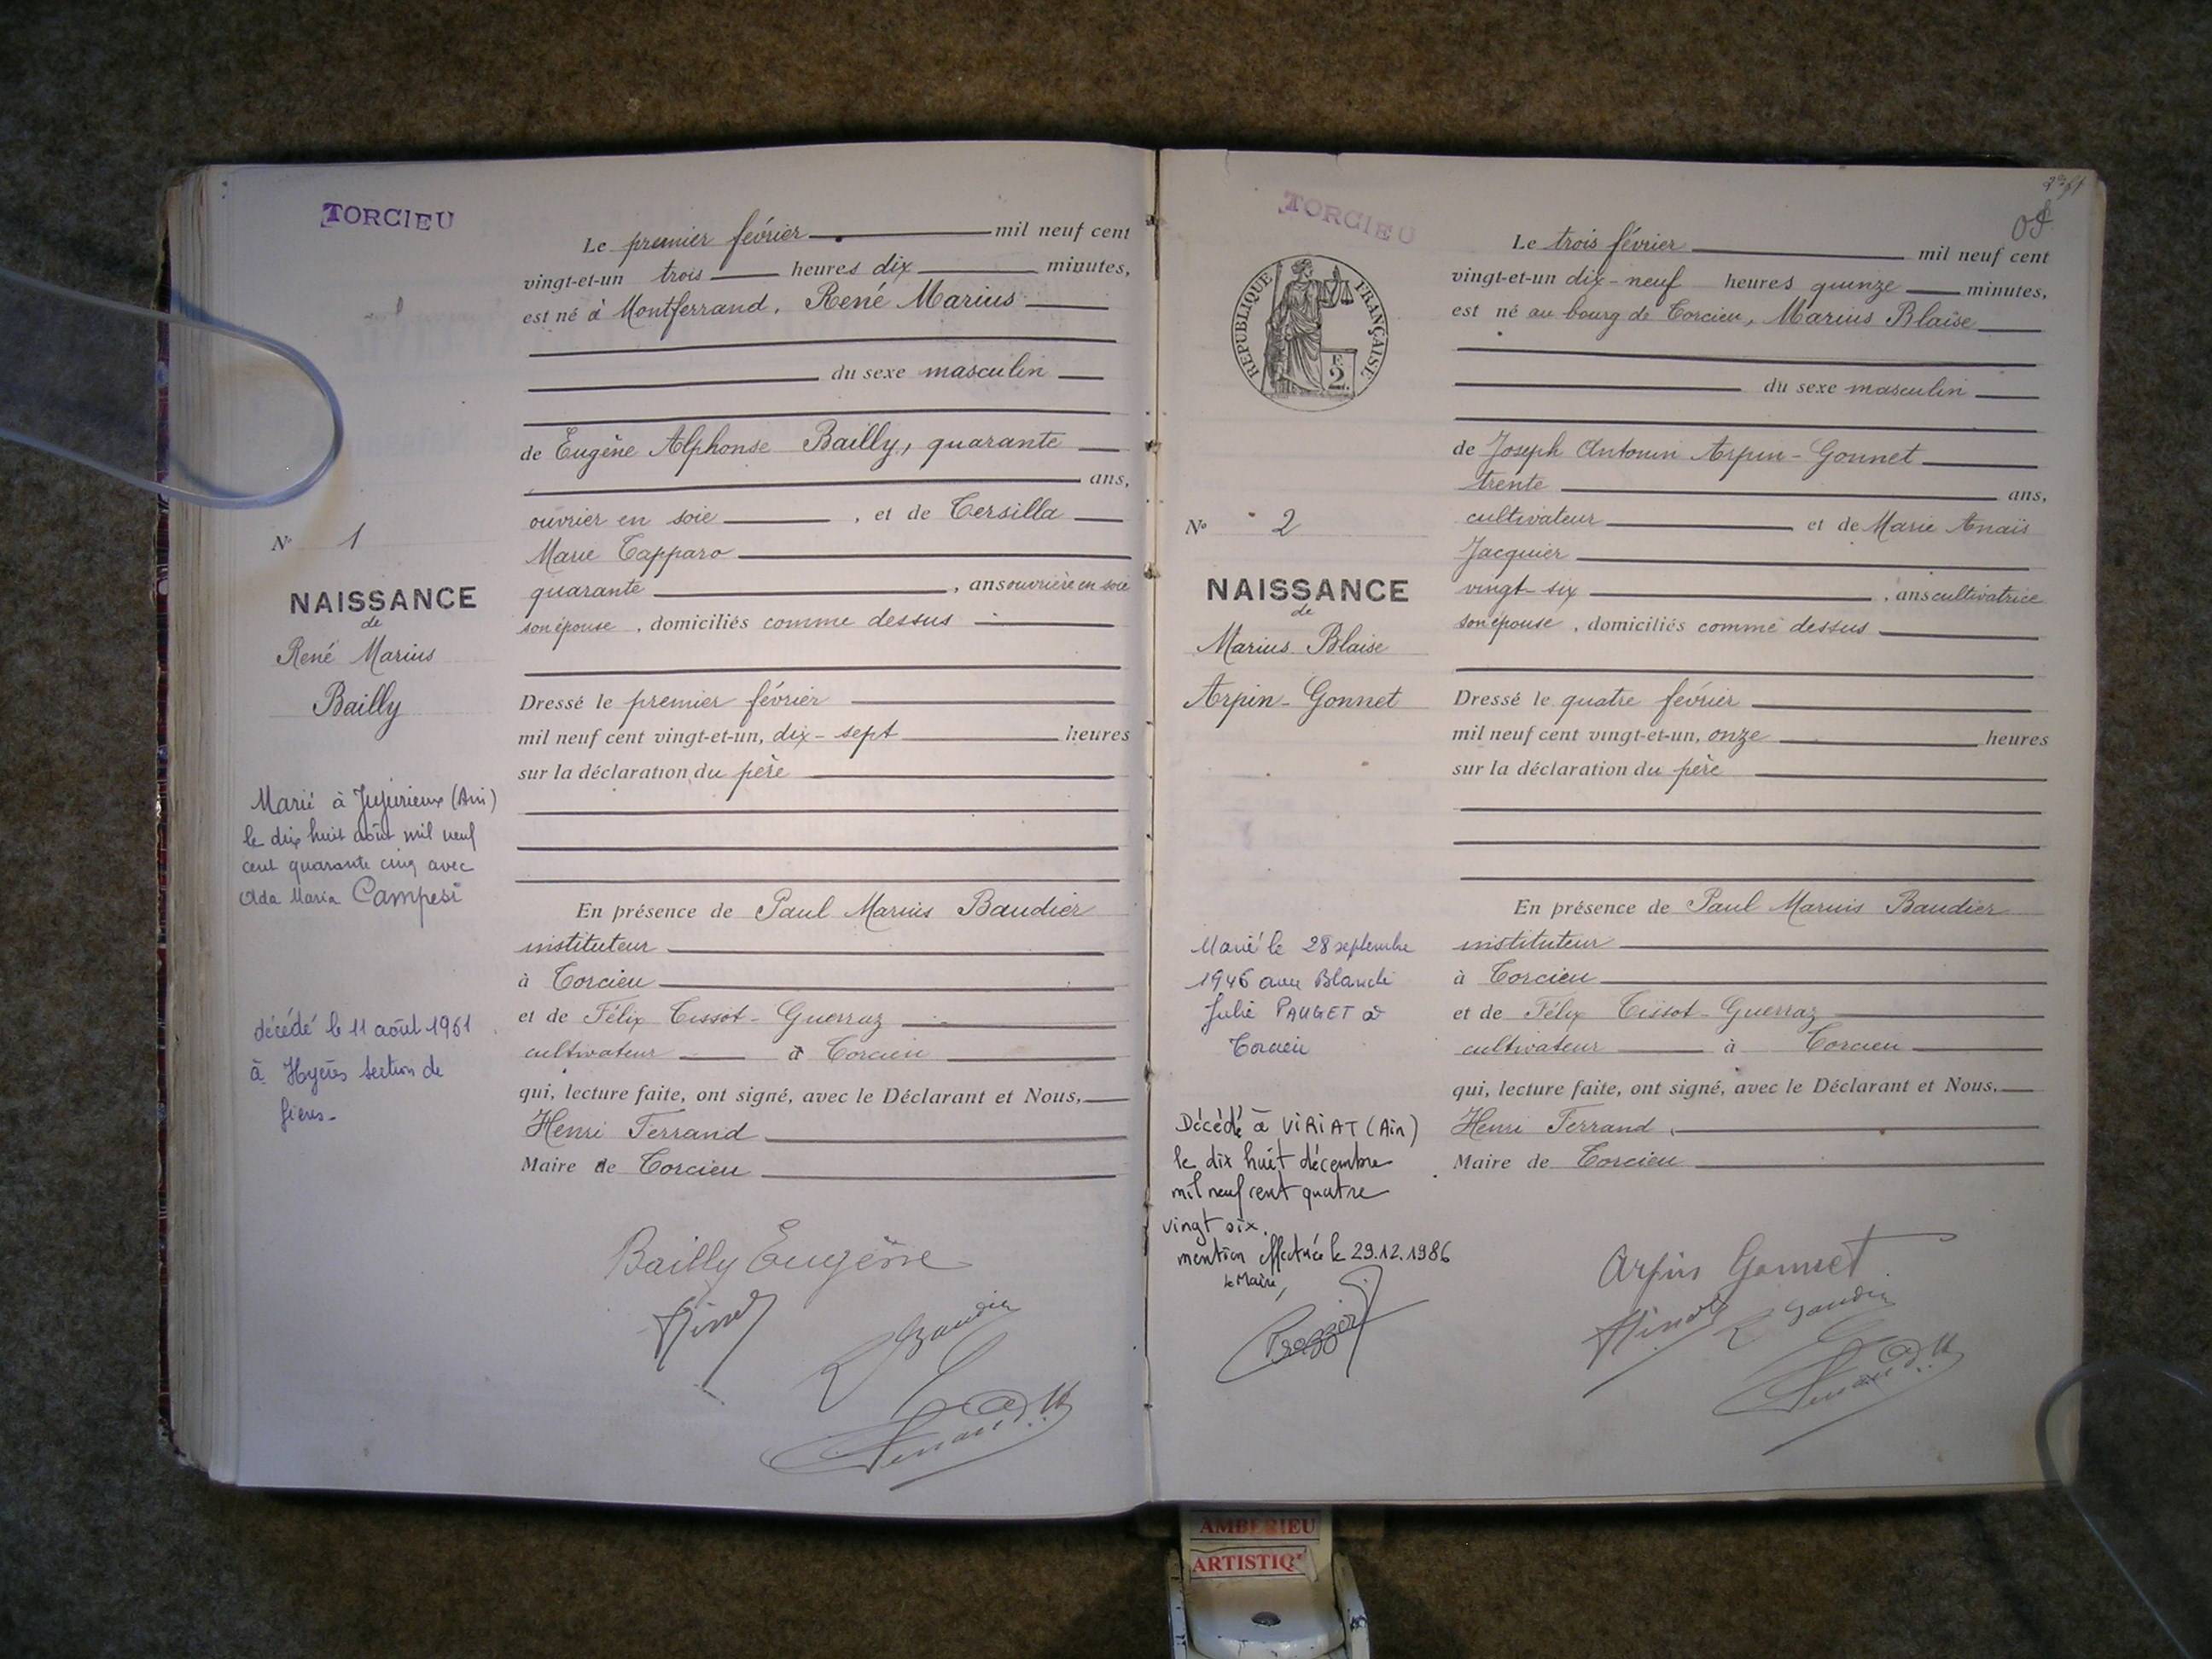 TORCIEU
Le premier février mil neuf cent
vingt-et-un trois heures dix minutes,
est né à Montferrand, René Marius
du sexe masculin
de Eugène Alphonse Bailly, quarante
ans,
ouvrier en soie, et de Tersilla
Marie Tapparo
quarante, ans ouvrière en soie
son épouse, domiciliés comme dessus
Dressé le premier février
mil neuf cent vingt-et-un, dix-sept heures
sur la déclaration du père
En présence de Paul Marius Baudier
instituteur
à Torcieu
et de Félix Tissot-Guerraz
cultivateur à Torcieu
qui, lecture faite, ont signé, avec le Déclarant et Nous,
Henri Ferrand
Maire de Torcieu
Bailly Eugène
N° 1
NAISSANCE
de
René Marius
Bailly
Marié à Jujurieux (Ain)
le dix huit août mil neuf
cent quarante cinq avec
Ada Maria Campesi
décédé le 11 août 1961
à Hyères section de
Giens-
TORCIEU
REPUBLIQUE FRANÇAISE
2
Le trois février mil neuf cent
vingt-et-un dix-neuf heures quinze minutes,
est né au bourg de Torcieu, Marius Blaise
du sexe masculin
de Joseph Antonin Arpin-Gonnet
trente ans,
cultivateur et de Marie Anaïs
Jacquier
vingt-six, ans cultivatrice
son épouse, domiciliés comme dessus
Dressé le quatre février
mil neuf cent vingt-et-un, onze heures
sur la déclaration du père
En présence de Paul Marius Baudier
instituteur
à Torcieu
et de Félix Tissot-Guerraz
cultivateur à Torcieu
qui, lecture faite, ont signé, avec le Déclarant et Nous.
Henri Ferrand,
Maire de Torcieu
Arpin Gonnet
N° 2
NAISSANCE
de
Marius Blaise
Arpin-Gonnet
Marié le 28 septembre
1946 avec Blanche
Julie PAUGET à
Torcieu
Décédé à VIRIAT (Ain)
le dix huit décembre
mil neuf cent quatre
vingt six.
mention effectuée le 29.12.1986
Le Maire,
AMBERIEU
ARTISTIQ'